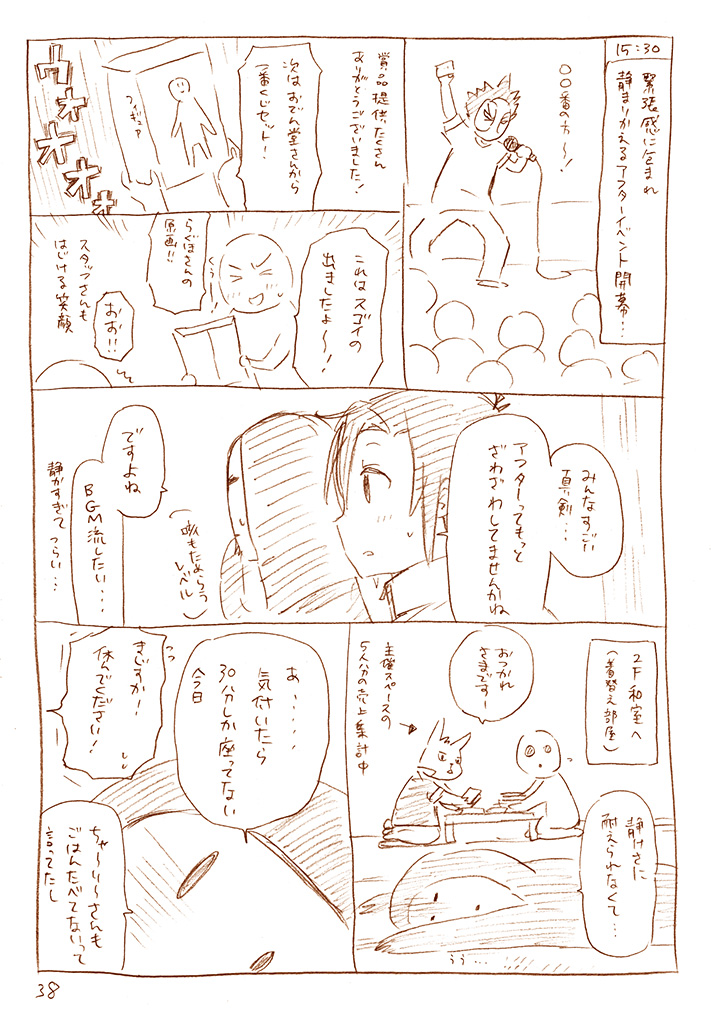 15:30
緊張感に包まれ
静まりかえるアフターイベント開幕…
〇〇番の方〜!
賞品提供たくさん
ありがとうございました!
次はおでん堂さんから
一番くじセット!
フィギュア
ウォオオオォ
これはスゴイの
出ましたよ〜!
らぐほさんの
原画!!
くぅー!
おお!!
スタッフさんも
はじける笑顔
みんなすごい
真剣…
アフターってもっと
ざわざわしてませんかね
(咳もためらう
レベル)
ですよね
BGM流したい…
静かすぎてつらい…
2F和室へ
(着替え部屋)
おつかれ
さまですー
主催スペースの
5人分の売上集計中
静けさに
耐えられなくて…
うう…
あ、……
気付いたら
30分しか座ってない
今日
っっ
まじすか!
休んでください!
ちゃ〜り〜さんも
ごはんたべてないって
言ってたし
38